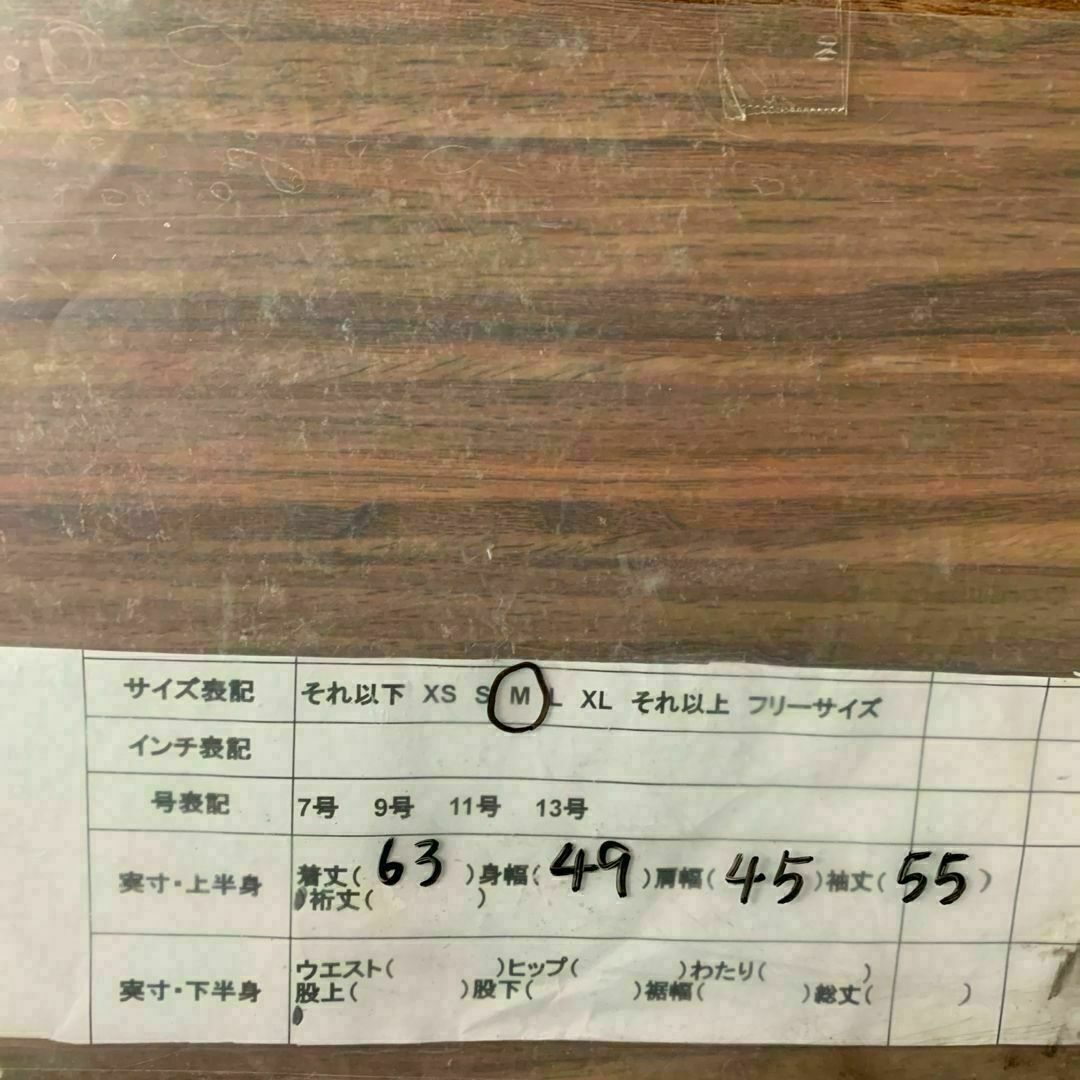 サイズ表記 それ以下 XS S M L XL それ以上 フリーサイズ
インチ表記
号表記 7号 9号 11号 13号
実寸・上半身 着丈( 63 )身幅( 49 )肩幅( 45 )袖丈( 55 )
裄丈( )
実寸・下半身 ウエスト( )ヒップ( )わたり( )
股上( )股下( )裾幅( )総丈( )